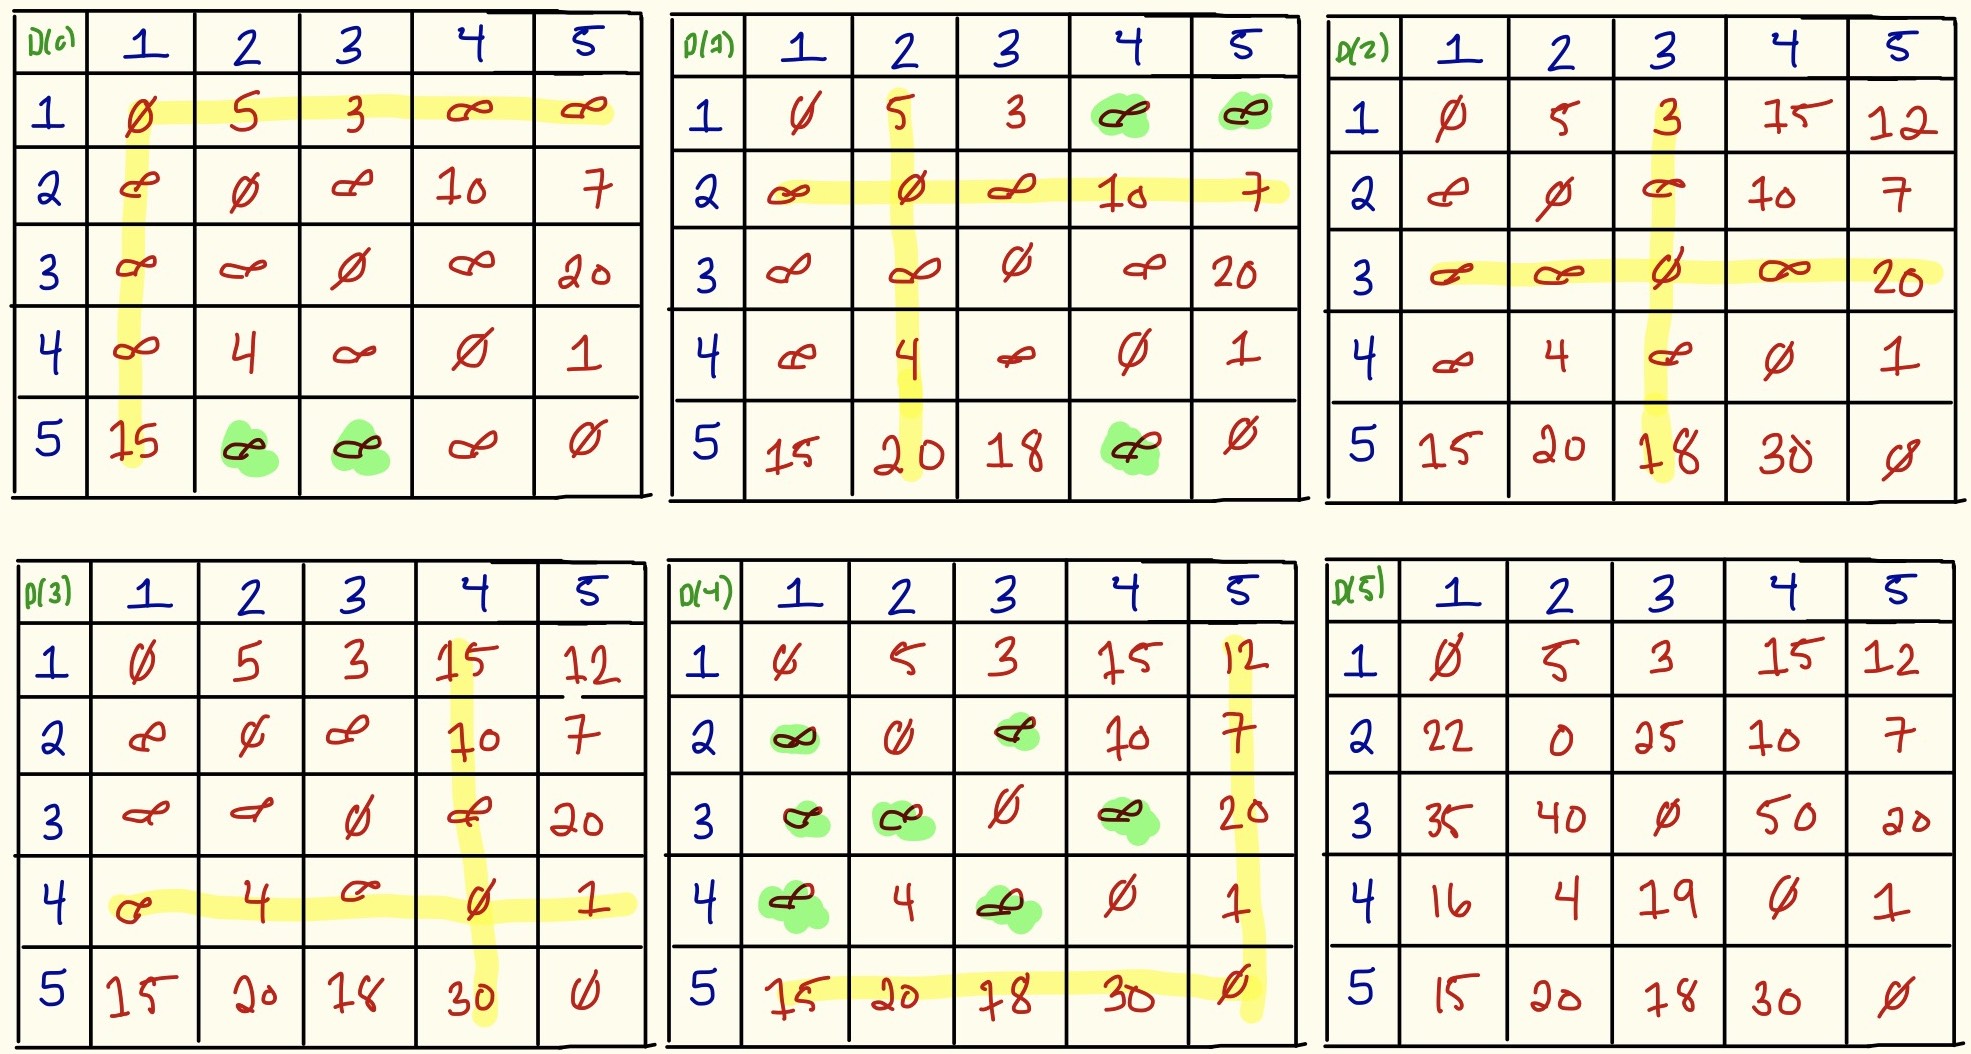 D(0) 1 2 3 4 5
1 Ø 5 3 ∞ ∞
2 ∞ Ø ∞ 10 7
3 ∞ ∞ Ø ∞ 20
4 ∞ 4 ∞ Ø 1
5 15 ∞ ∞ ∞ Ø
D(1) 1 2 3 4 5
1 Ø 5 3 ∞ ∞
2 ∞ Ø ∞ 10 7
3 ∞ ∞ Ø ∞ 20
4 ∞ 4 ∞ Ø 1
5 15 20 18 ∞ Ø
D(2) 1 2 3 4 5
1 Ø 5 3 15 12
2 ∞ Ø ∞ 10 7
3 ∞ ∞ Ø ∞ 20
4 ∞ 4 ∞ Ø 1
5 15 20 18 30 Ø
D(3) 1 2 3 4 5
1 Ø 5 3 15 12
2 ∞ Ø ∞ 10 7
3 ∞ ∞ Ø ∞ 20
4 ∞ 4 ∞ Ø 1
5 15 20 18 30 Ø
D(4) 1 2 3 4 5
1 Ø 5 3 15 12
2 ∞ Ø ∞ 10 7
3 ∞ ∞ Ø ∞ 20
4 ∞ 4 ∞ Ø 1
5 15 20 18 30 Ø
D(5) 1 2 3 4 5
1 Ø 5 3 15 12
2 22 0 25 10 7
3 35 40 Ø 50 20
4 16 4 19 Ø 1
5 15 20 18 30 Ø